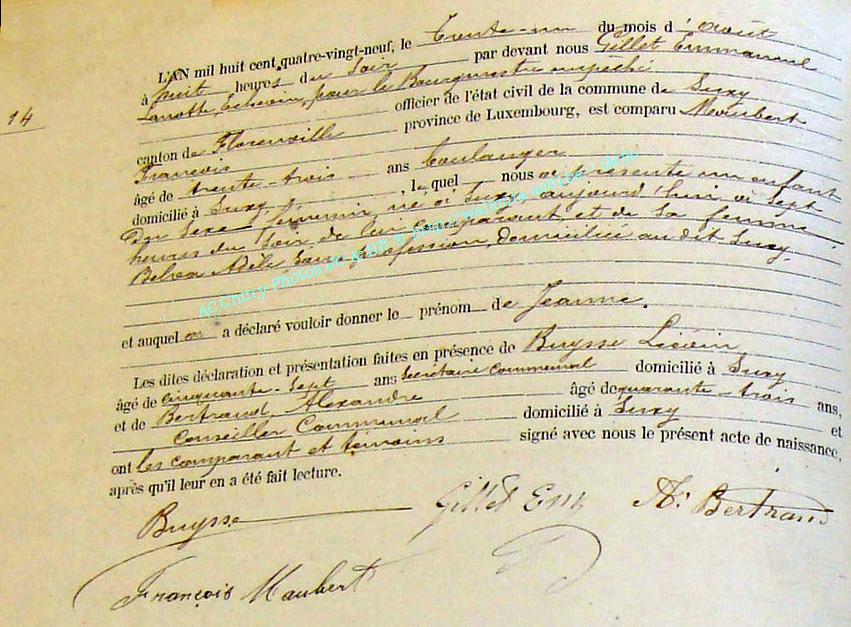 14
L'AN mil huit cent quatre-vingt-neuf, le trente-un du mois d'août
à huit heures du soir par devant nous Gillet Emmanuel
échevin, pour le Bourgmestre empêché
officier de l'état civil de la commune de Suxy
canton de Florenville province de Luxembourg, est comparu Maubert
François
âgé de trente-trois ans boulanger
domicilié à Suxy, lequel nous a présenté un enfant
du sexe féminin, né à Suxy aujourd'hui à sept
heures du soir de lui comparant et de sa femme
Belva Adèle sans profession, domiciliée au dit Suxy.
et auquel on a déclaré vouloir donner le prénom de Jeanne.
Les dites déclaration et présentation faites en présence de Buysse Liévin
âgé de cinquante-sept ans Secrétaire Communal domicilié à Suxy
et de Bertrand Alexandre âgé de quarante-trois ans,
Conseiller Communal domicilié à Suxy et
ont les comparant et témoins signé avec nous le présent acte de naissance,
après qu'il leur en a été fait lecture.
Buysse Gillet Em Ax Bertrand
François Maubert
AC Chiny Photos JC & HB ©